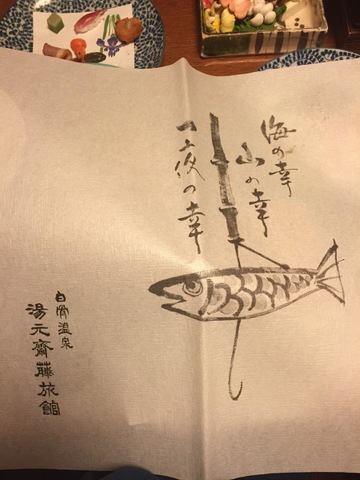 海の幸
山の幸
一夜の幸
白骨温泉
湯元齋藤旅館